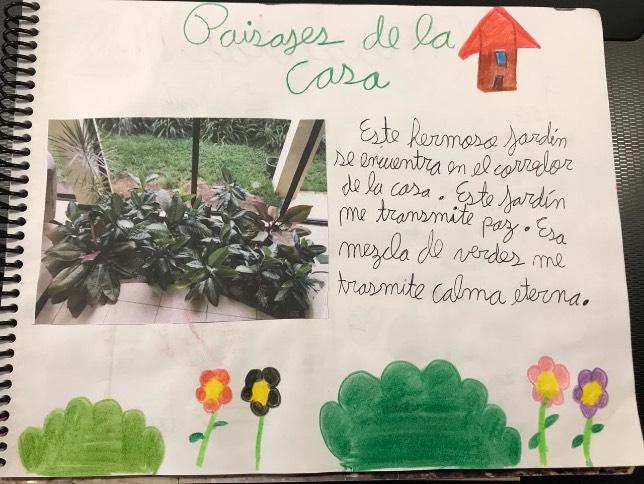 Paisajes de la
Casa
Este hermoso jardín
se encuentra en el corredor
de la casa. Este jardín
me transmite paz. Esa
mezcla de verdes me
trasmite calma eterna.